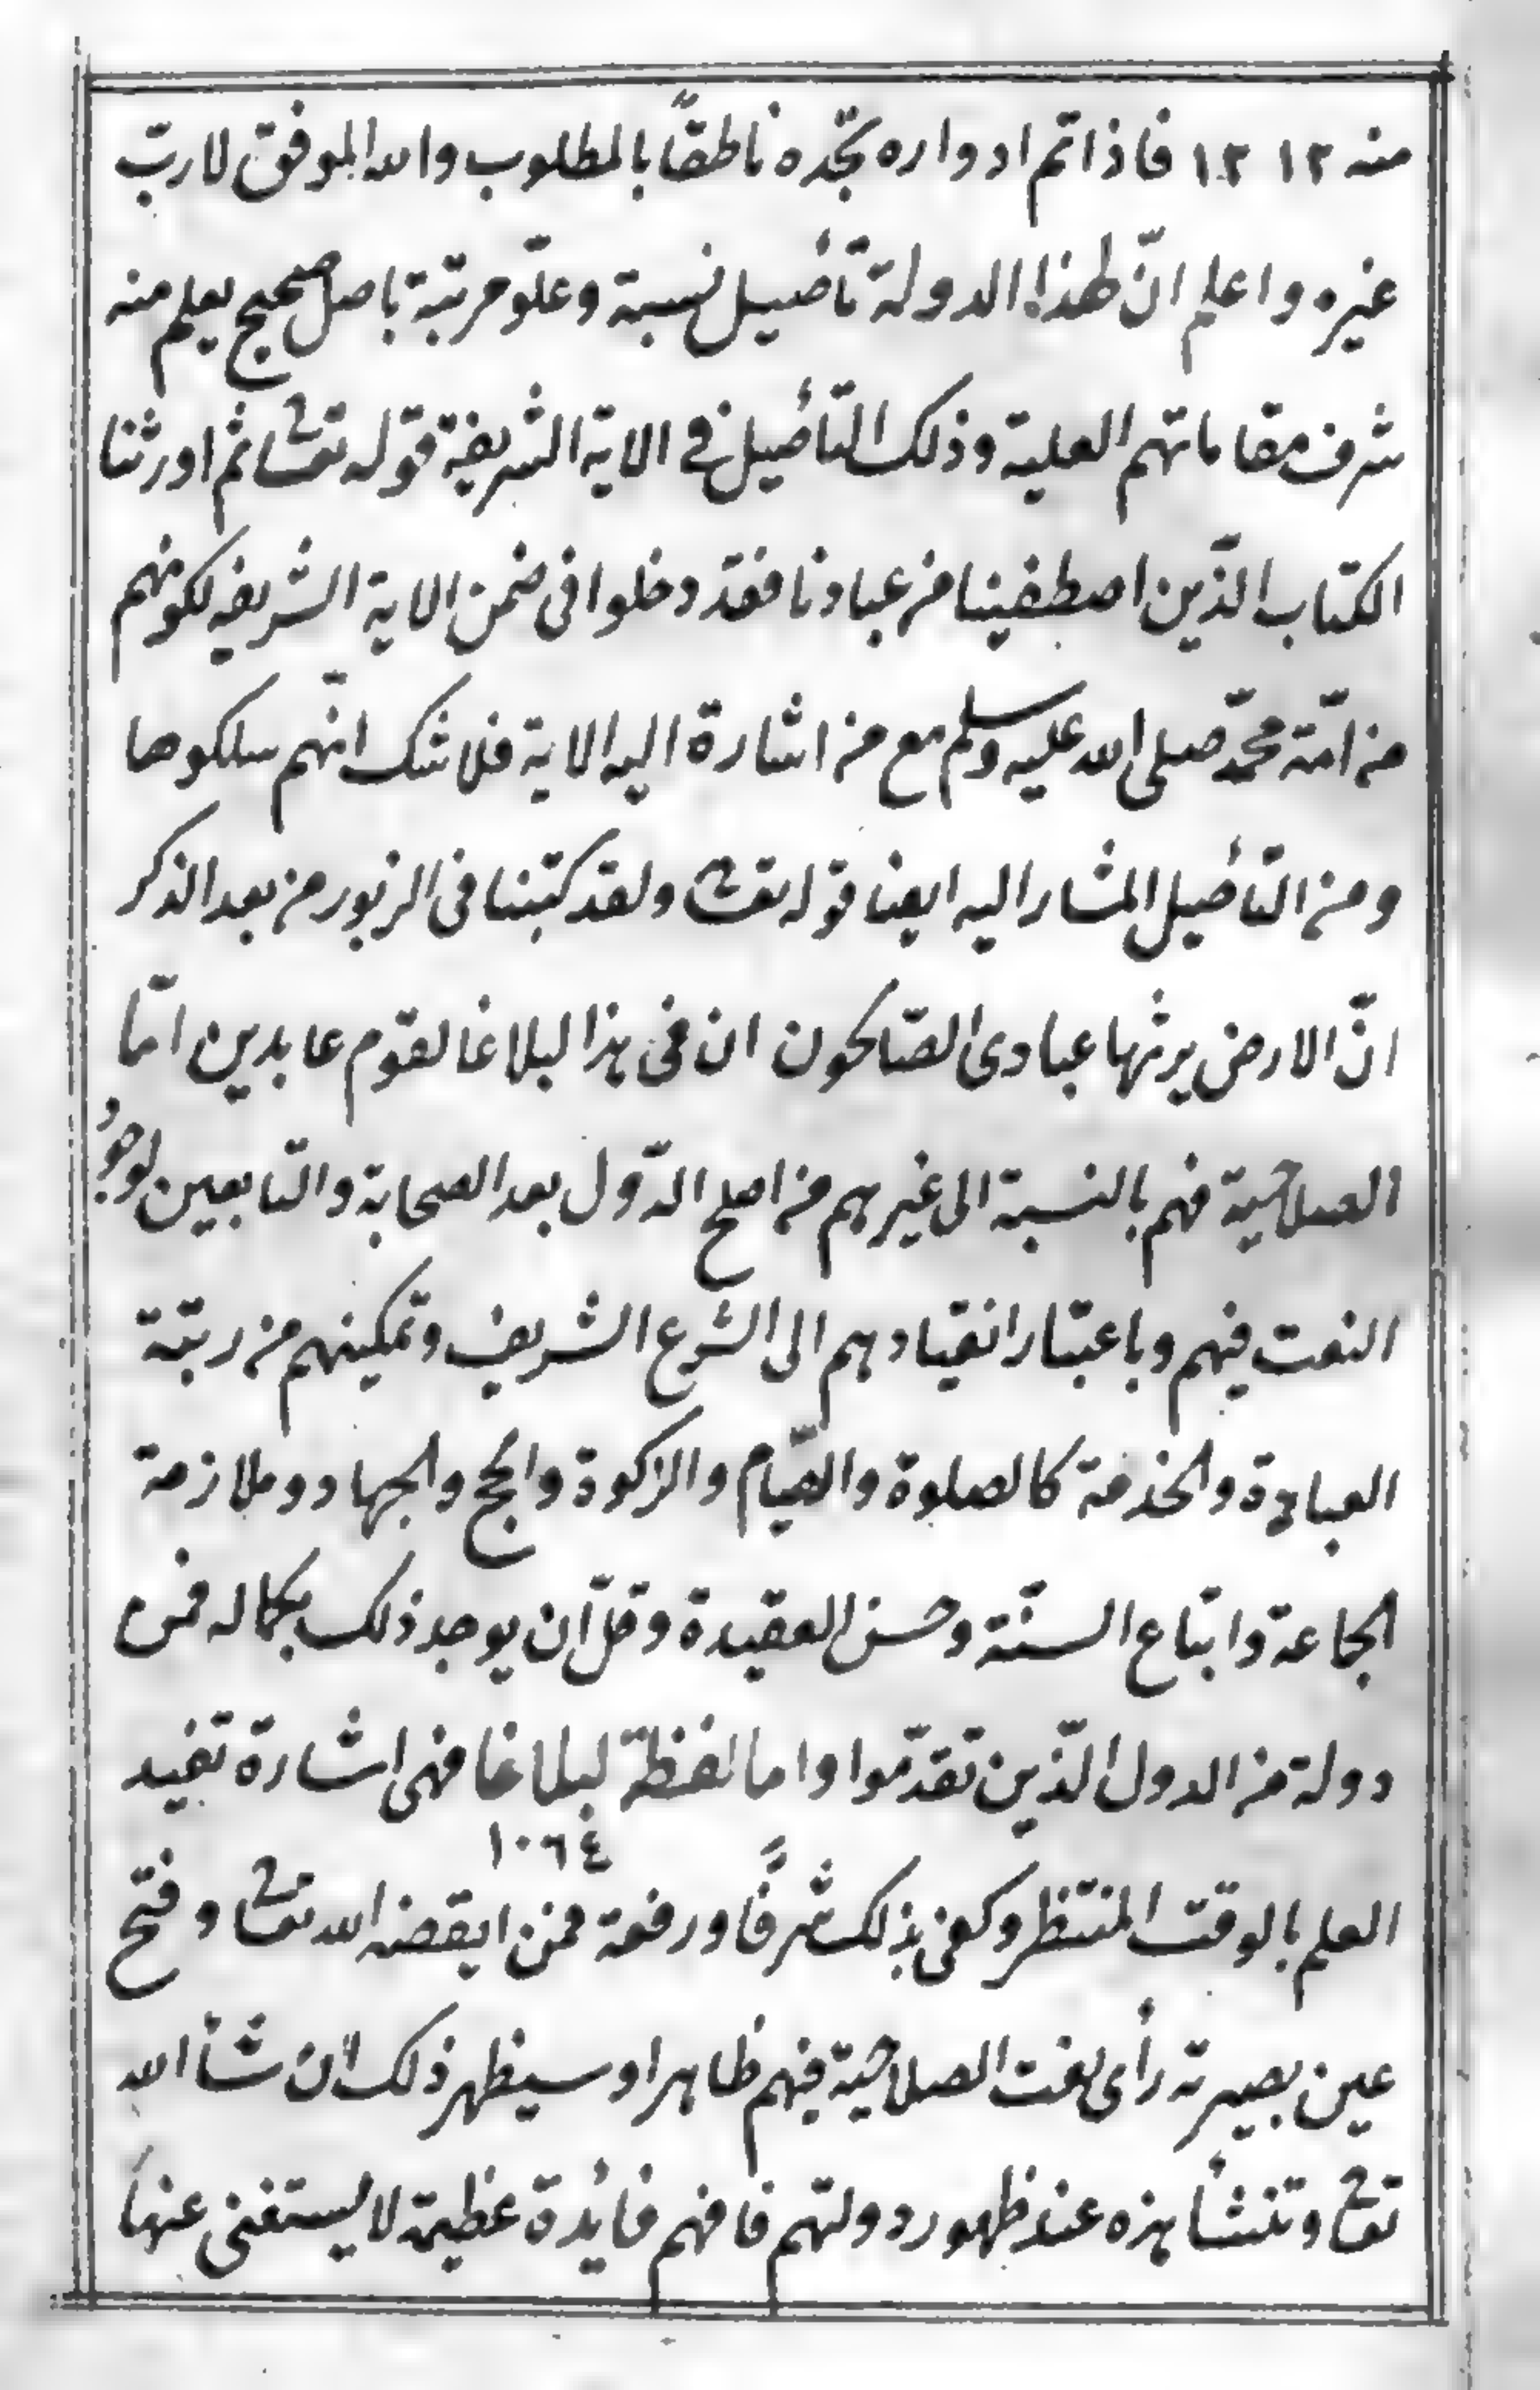 منه ١٢ ١٢ فاذا تم ادواره تجّده ناطقًا بالمطلوب والله الموفق لا ربّ
غيره واعلم انّ لهذا الدولة تأصيل نسبة وعلوّ مرتبة باصل صحيح يعلم منه
شرف مقاماتهم العلية وذلك التأصيل في الاية الشريفة قوله تعالى ثم اورثنا
الكتاب الذّين اصطفينا من عبادنا فقد دخلوا فى ضمن الاية الشريفه لكونهم
من امّة محمّد صلى الله عليه وسلم مع من اشارة اليه الاية فلا شك انّهم سلكوها
ومن التأصيل المشار اليه ايضا قوله تعالى ولقد كتبنا فى الزبور من بعد الذكر
انّ الارض يرثها عبادى الصّالحون ان فى هذا لبلاغا لقوم عابدين امّا
الصلاحيّة فهم بالنسبة الى غيرهم من اصلح الدّول بعد الصحابة والتّابعين لوجود
النعت فيهم وباعتبار انقيادهم الى الشرع الشريف وتمكينهم من رتبة
العبادة والخدمة كالصلوة والصّيام والزكوة والحج والجهاد وملازمة
الجماعة واتباع السنّة وحسن العقيدة وقلّ ان يوجد ذلك بكماله فمن
دولة من الدول الذّين تقدّموا واما لفظة لبلاغا فهى اشارة تفيد
١٠٦٤
العلم بالوقت المنتظر وكفى بذلك شرفًا ورفعة فمن ايقضه الله تعالى وفتح
عين بصيرته رأى نعت الصلاحيّة فيهم ظاهرا وسيظهر ذلك ان شأ الله
تعالى وتنشأ هذه عند ظهور دولتهم فافهم فائدة عظيمة لا يستغنى عنها